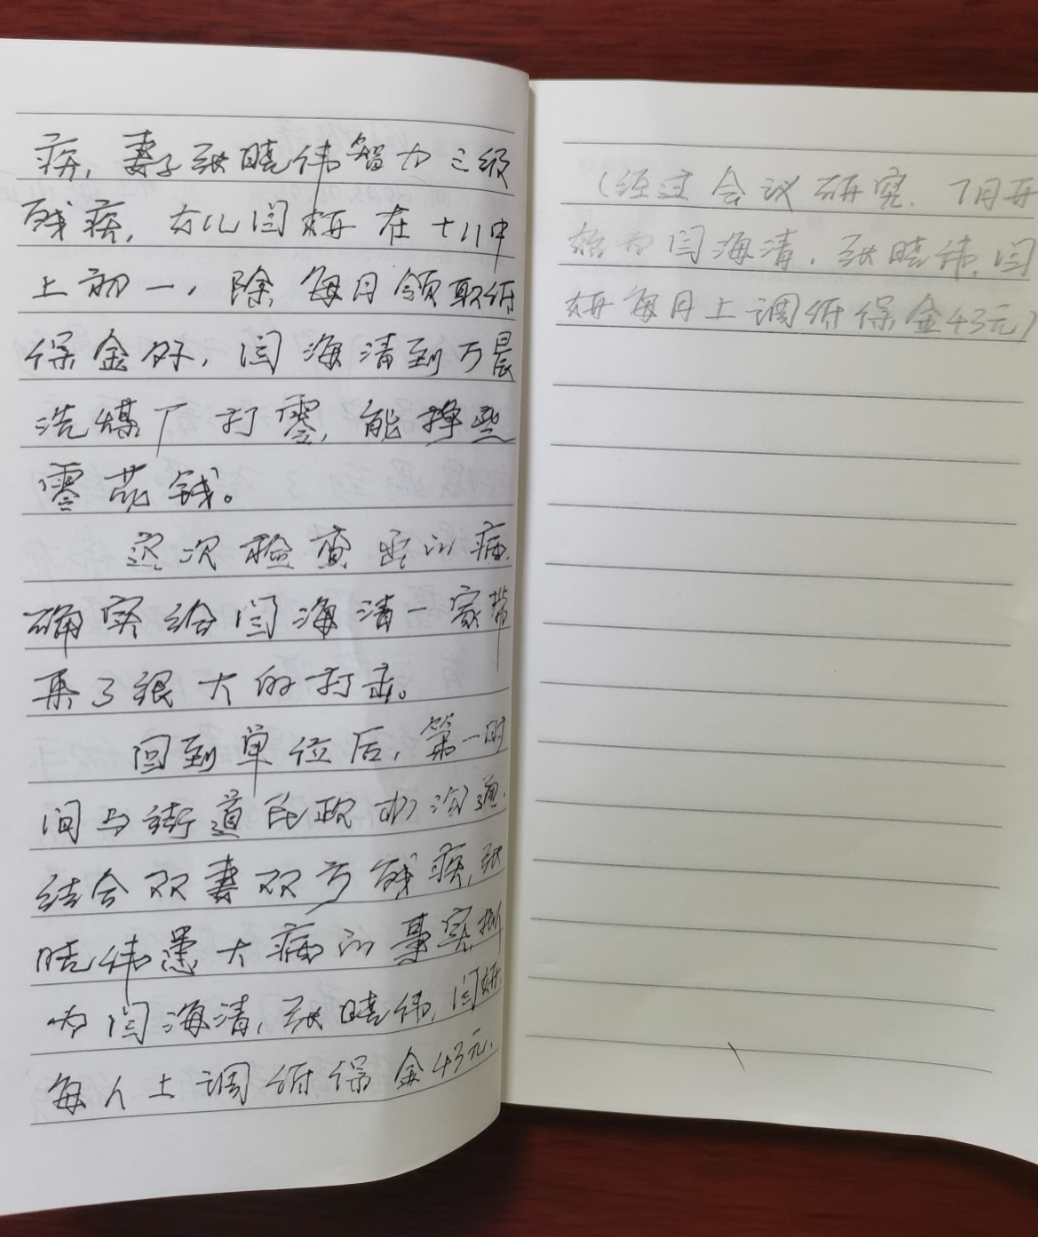 疾，妻子张晓伟智力三级
残疾，女儿闫妍在十八中
上初一，除每月领取低
保金外，闫海清到万晨
洗煤厂打零，能挣些
零花钱。
这次检查出的病，
确实给闫海清一家带
来了很大的打击。
回到单位后，第一时
间与街道民政办沟通，
结合双妻双方残疾，张
晓伟患大病的事实，拟
为闫海清，张晓伟，闫妍，
每人上调低保金43元.
（经过会议研究. 7月开
始为闫海清，张晓伟，闫
妍每月上调低保金43元）